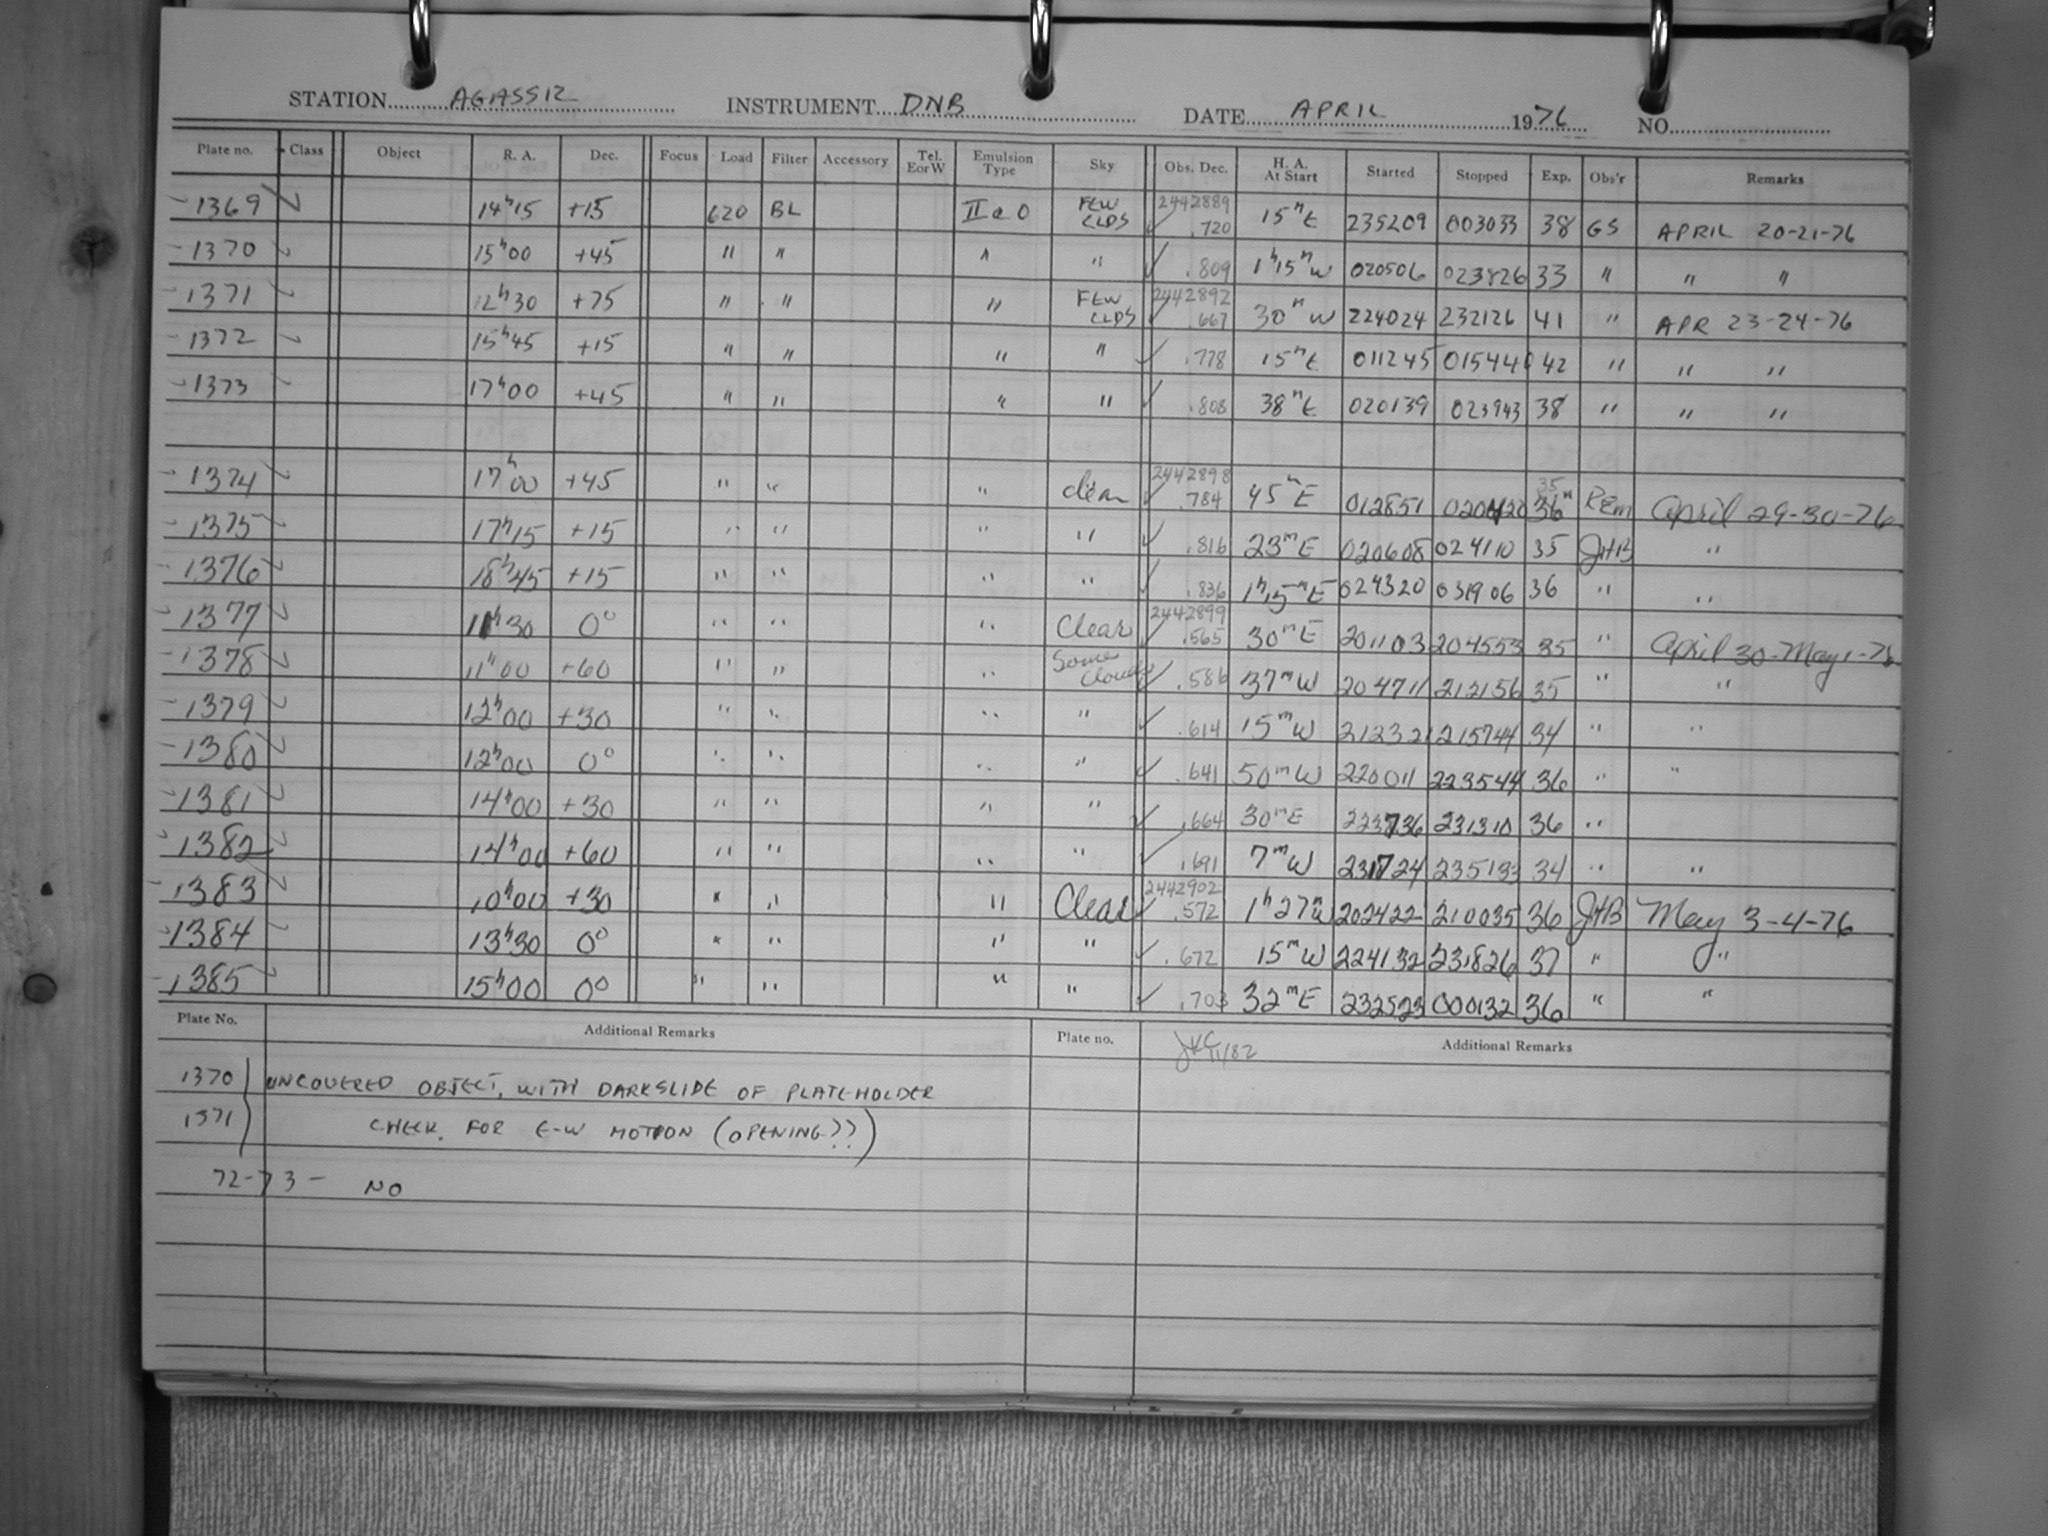 STATION AGASSIZ INSTRUMENT DNB DATE APRIL 1976 NO.
Plate no. Class Object R. A. Dec. Focus Load Filter Accessory Tel. E or W Emulsion Type Sky Obs. Dec. H. A. At Start Started Stopped Exp. Obs'r Remarks
1369 14h15 +15 620 BL IIa0 FEW CLDS 2442889 .720 15mE 235209 003033 38 GS APRIL 20-21-76
1370 15h00 +45 " " " " .809 1h15mW 020506 023826 33 " " "
1371 12h30 +75 " " " FEW CLDS 2442892 .667 30mW 224024 232126 41 " APR 23-24-76
1372 15h45 +15 " " " " .778 15mE 011245 015440 42 " " "
1373 17h00 +45 " " " " .808 38mE 020139 023943 38 " " "
1374 17h00 +45 " " " clear 2442898 .784 45mE 012851 020420 35 36m REM April 29-30-76
1375 17h15 +15 " " " " .816 23mE 020608 024110 35 JHB "
1376 18h45 +15 " " " " .836 1h15mE 024320 031906 36 " "
1377 11h30 0° " " " Clear 2442899 .565 30mE 201103 204553 35 " April 30-May 1-76
1378 11h00 +60 " " " Some clouds .586 37mW 204711 212156 35 " "
1379 12h00 +30 " " " " .614 15mW 212321 215744 34 " "
1380 12h00 0° " " " " .641 50mW 220011 223544 36 " "
1381 14h00 +30 " " " " .664 30mE 223736 231310 36 "
1382 14h00 +60 " " " " .691 7mW 231724 235133 34 " "
1383 10h00 +30 " " " Clear 2442902 .572 1h27mW 202422 210035 36 JHB May 3-4-76
1384 13h30 0° " " " " .672 15mW 224132 231826 37 " "
1385 15h00 0° " " " " .703 32mE 232523 000132 36 " "
Plate No. Additional Remarks Plate no. JKC 11/82 Additional Remarks
1370 UNCOVERED OBJECT. WITH DARKSLIDE OF PLATEHOLDER
1371 CHECK FOR E-W MOTION (OPENING??)
72-73 - NO